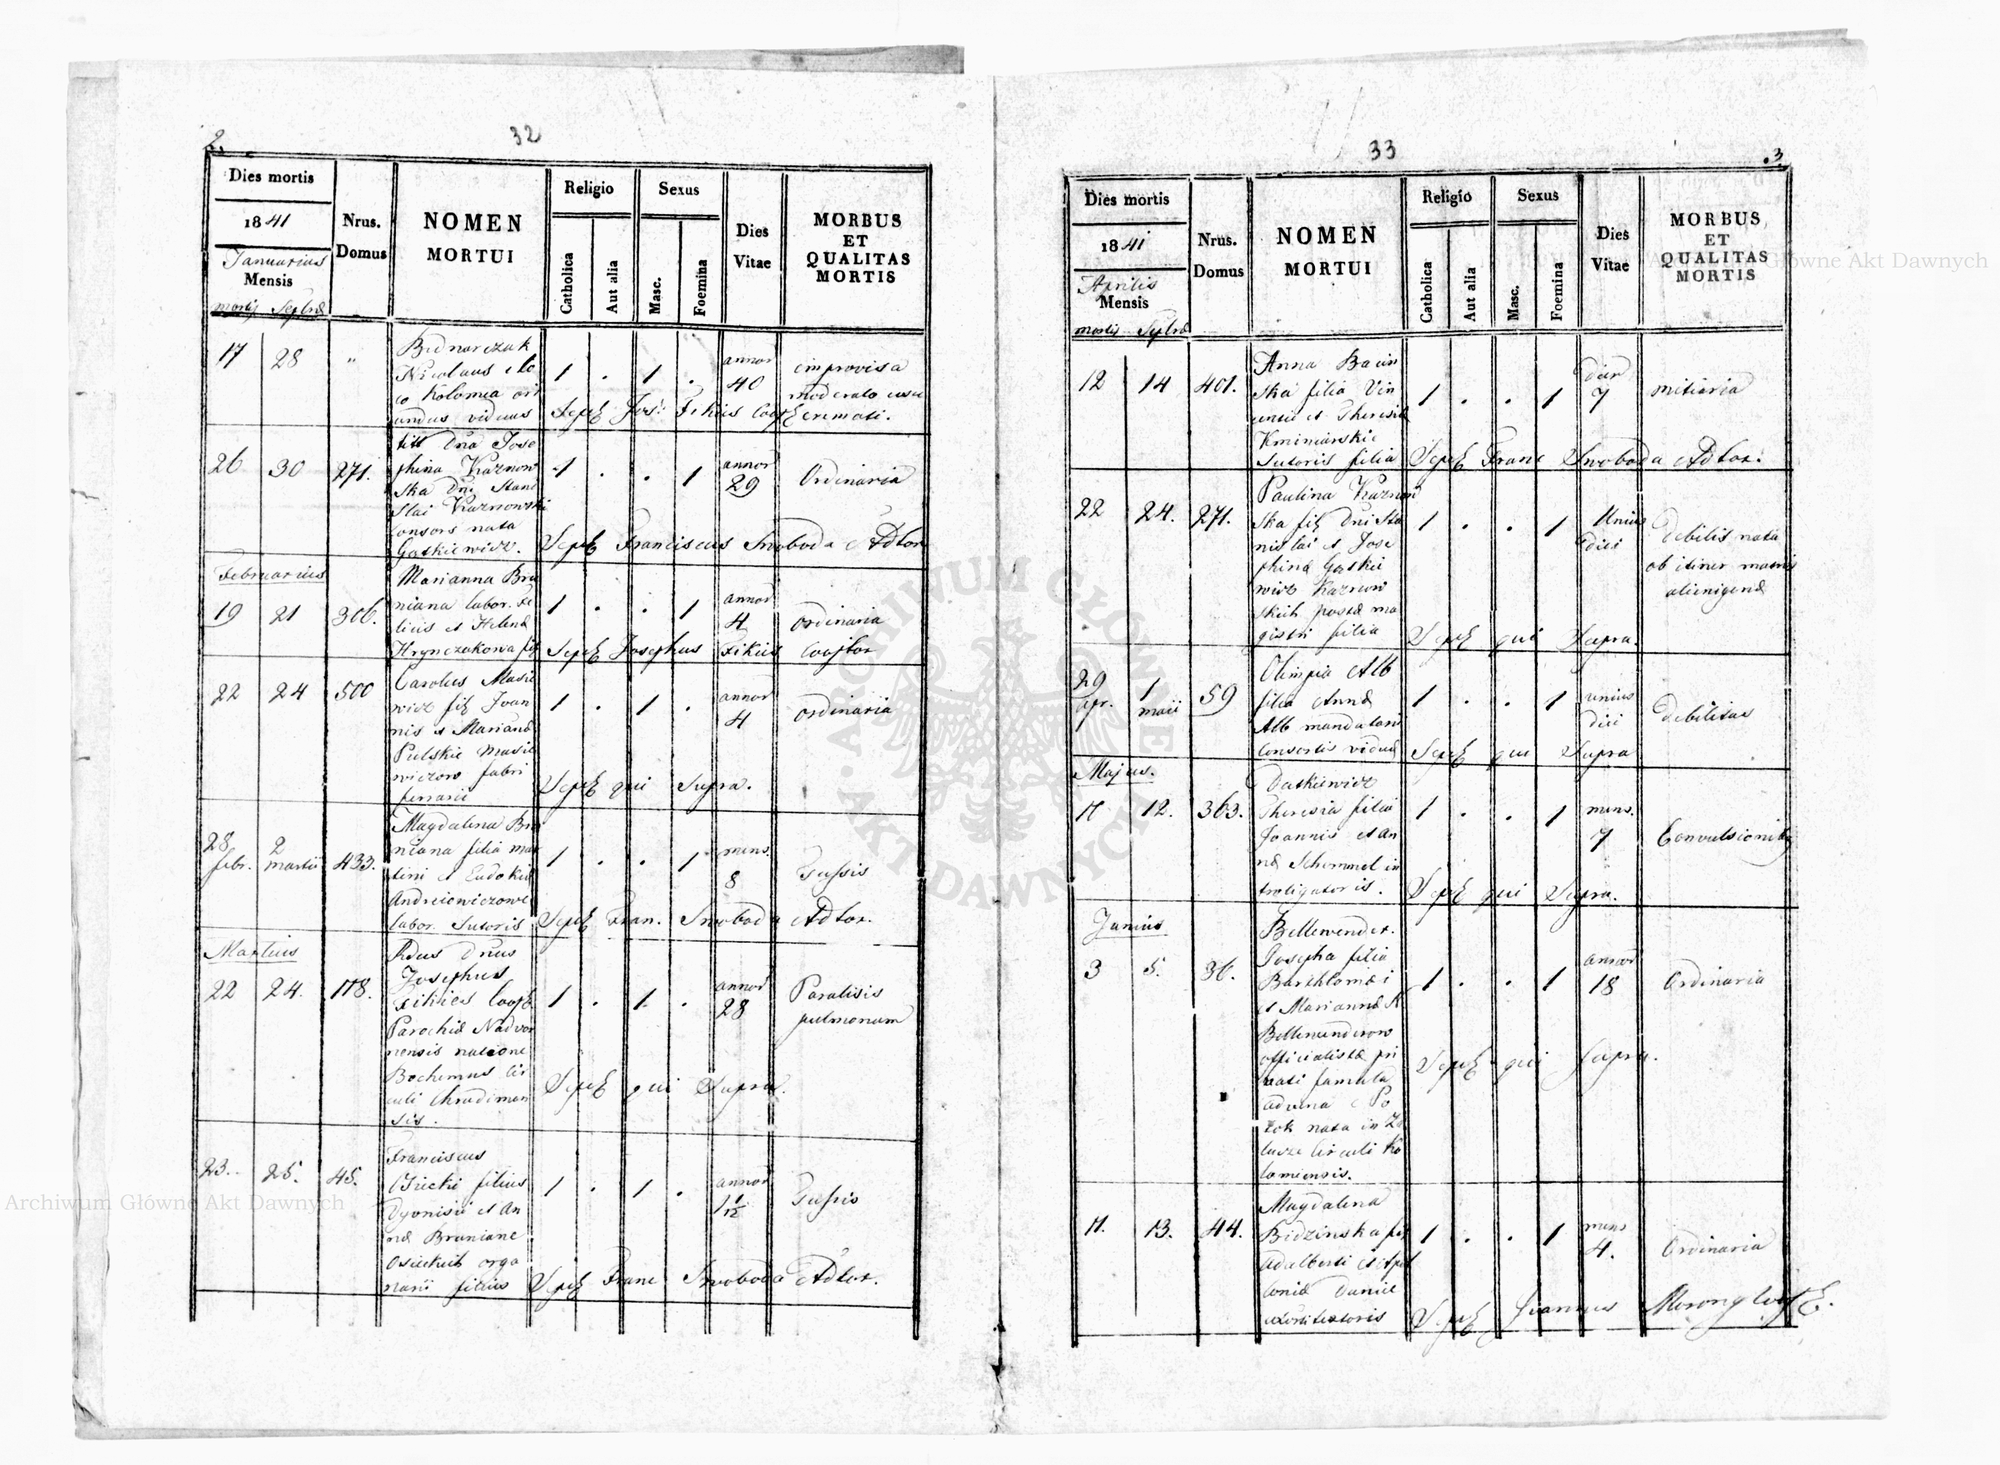 2. 32
Dies mortis
1841
Januarius
Mensis
mortis Sepltrae
Nrus. Domus
NOMEN MORTUI
Religio
Catholica
Aut alia
Sexus
Masc.
Foemina
Dies Vitae
MORBUS ET QUALITAS MORTIS
17 28 "
Bednarczuk
Nicolaus
Kolomea ori
undus viduus
1 . 1 .
annor 40
improvisa
moderato usu
cremati.
Sepel Jos: Fikies Coop
26 30 271.
titt Dna Jose
phina Kaznow
ska Dni Stani
slai Kaznowski
consors nata
Gatkiewicz.
1 . . 1
annor 29
Ordinaria
Sepel Franciscus Swoboda Adtor
Februarius
19 21 306.
Marianna Bru
niana labor. Fe
licis et Helenae
Hrynczakowa fil
1 . . 1
annor 4
ordinaria
Sepel Josephus Fikies Cooptor
22 24 500
Carolus Masie
wicz fil Joan
nis et Mariannae
Pulskie Masie
wiczow fabri
ferrarii
1 . 1 .
annor 4
ordinaria
Sepel qui supra.
28 febr. 2 martii 433.
Magdalena Bru
niana filia mar
tini et Eudokiae
Andreiewiczowe
labor. Sutoris
1 . . 1
mens. 8
Tussis
Sepel Fran. Swoboda Adtor.
Martius
22 24. 178.
Rdus Dnus
Josephus
Fikies Coop
Parochiae Nadvor
nensis natione
Bochemus cir
culi Chrudimen
sis.
1 . 1 .
annor 28
Paralisis
pulmonum
Sepel qui Supra.
23. 25. 45.
Franciscus
Osiecki filius
Dyonisii et An
nae Bruniane
Osieckich orga
narii filius
1 . 1 .
annor 1 1/12
Tussis
Sepel Franc Swoboda Adtor.
33 3.
Dies mortis
1841
Aprilis
Mensis
mortis Sepltrae
Nrus. Domus
NOMEN MORTUI
Religio
Catholica
Aut alia
Sexus
Masc.
Foemina
Dies Vitae
MORBUS ET QUALITAS MORTIS
12 14 401.
Anna Bacin
ska filia Vin
centii et Theresiae
Kminiarskie
Sutoris filia
1 . . 1
dier 7
Sepel Franc Swoboda Adtor.
22 24. 271.
Paulina Kaznow
ska fil Dni Sta
nislai et Jose
phinae Gatkie
wicz Kaznow
skich postae ma
gistri filia
1 . . 1
Unius diei
debilis nata
ob itiner matris
alienigenae
Sepel qui supra.
29 apr. 1 maii 59
Olimpia Alb
filia Annae
Alb mandatarii
consortis viduae
1 . . 1
unius diei
debilitas
Sepel qui Supra
Majus.
11 12. 363.
Datkiewicz
Theresia filia
Joannis et An
nae Schemmel in
troligatoris.
1 . . 1
mens. 7
Convulsionibus
Sepel qui Supra.
Junius
3 5. 36.
Bellewender.
Josepha filia
Barthlomaei
et Mariannae R
Bellewenderow
officialistae pri
vati famula
advena Po
tok nata in Za
lucze Circuli Ko
lomiensis.
1 . . 1
annor 18
Ordinaria
Sepel qui supra.
11. 13. 44.
Magdalena
Bidzinska fil
Adalberti et Apol
loniae Daniel
1 . . 1
mens 4.
Ordinaria
Sepel Joannes
Archiwum Główne Akt Dawnych
Archiwum Główne Akt Dawnych
ARCHIWUM GŁÓWNE · AKT DAWNYCH ·